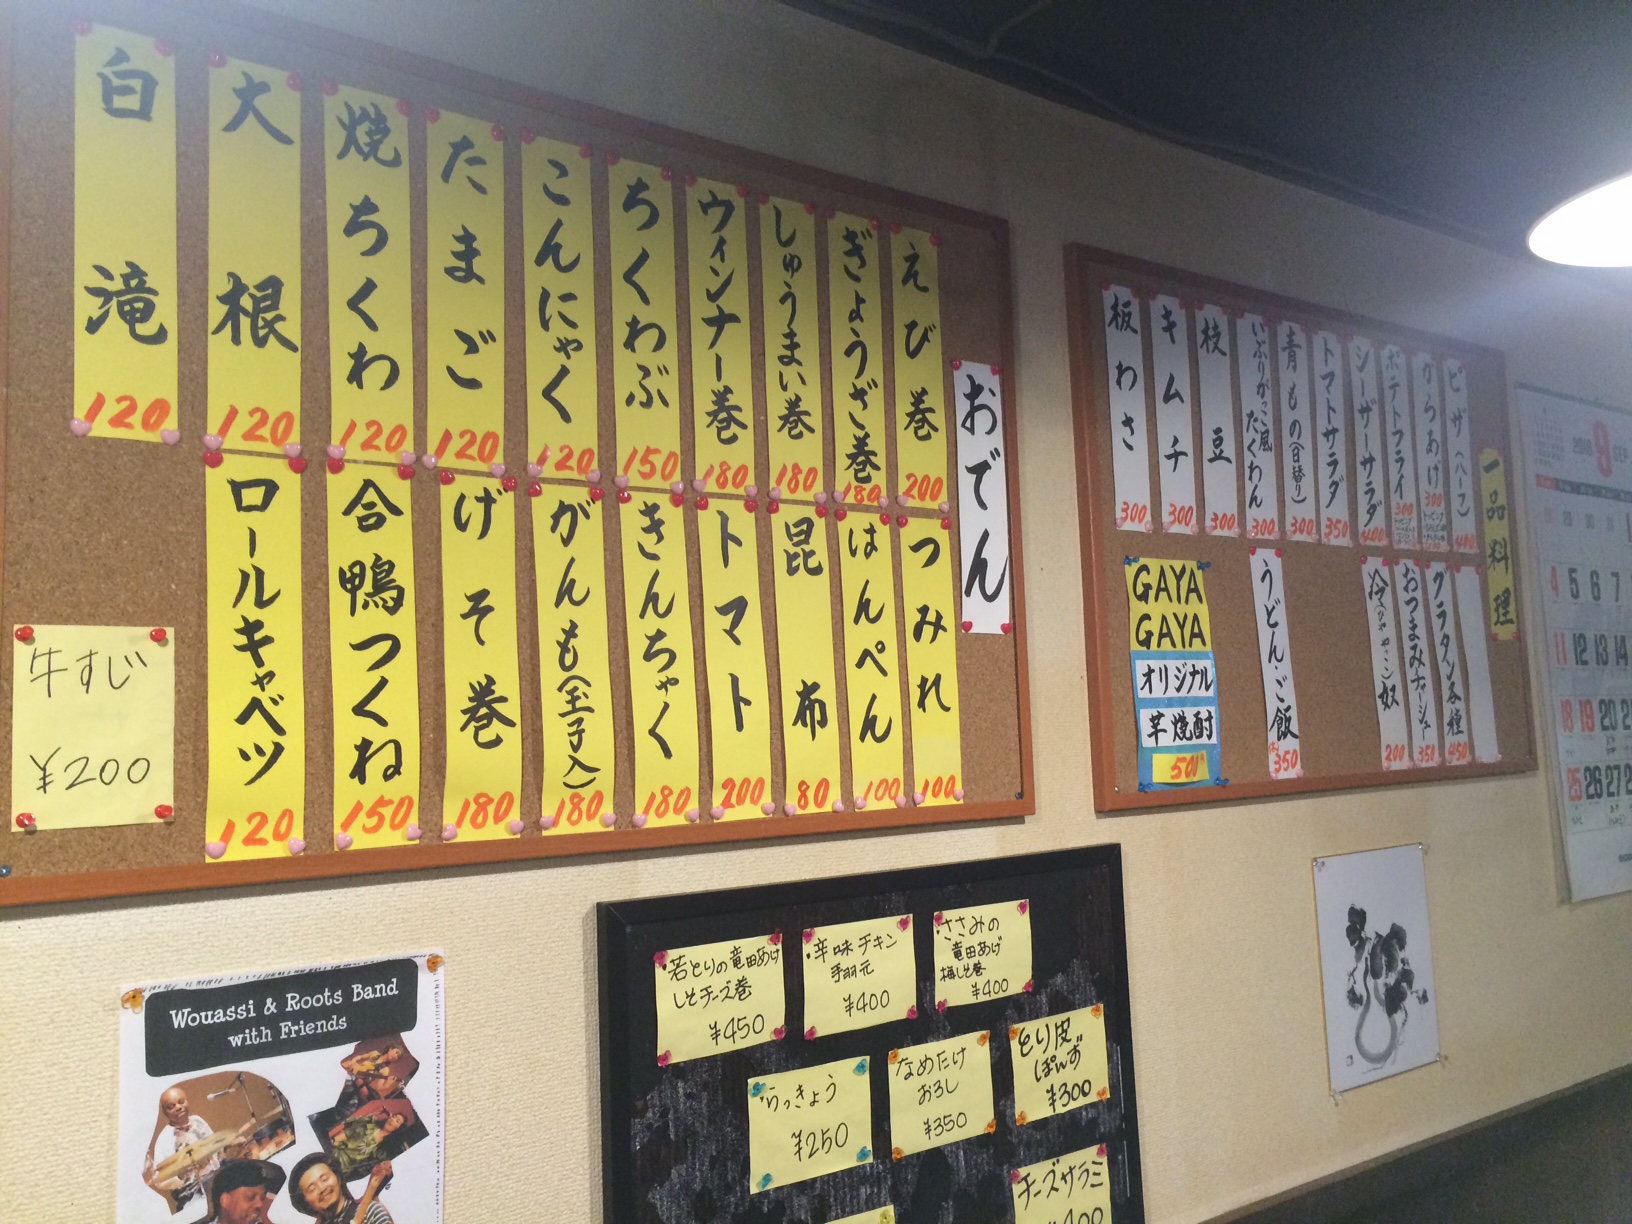 おでん
えび巻 200
ぎょうざ巻 180
しゅうまい巻 180
ウィンナー巻 180
ちくわぶ 150
こんにゃく 120
たまご 120
焼ちくわ 120
大根 120
白滝 120
つみれ 100
はんぺん 100
昆布 80
トマト 200
きんちゃく 180
がんも(玉子入) 180
げそ巻 180
合鴨つくね 150
ロールキャベツ 120
牛すじ
¥200
一品料理
ピザ(ハーフ) 400
からあげ 300
ポテトフライ 300
シーザーサラダ 400
トマトサラダ 350
青もの(日替り) 300
いぶりがっこ風たくわん 300
枝豆 300
キムチ 300
板わさ 300
グラタン各種 450
おつまみチャーシュー 350
冷(ひややっこ)奴 200
うどん・ご飯 350
GAYA
GAYA
オリジナル
芋焼酎
500
・若とりの竜田あげ
しそチーズ巻
¥450
・辛味チキン
手羽元
¥400
・ささみの
竜田あげ
梅しそ巻
¥400
・らっきょう
¥250
なめたけ
おろし
¥350
とり皮
ぽんず
¥300
チーズサラミ
¥400
Wouassi & Roots Band
with Friends
9
4 5 6 7
11 12 13 14
18 19 20
25 26 27